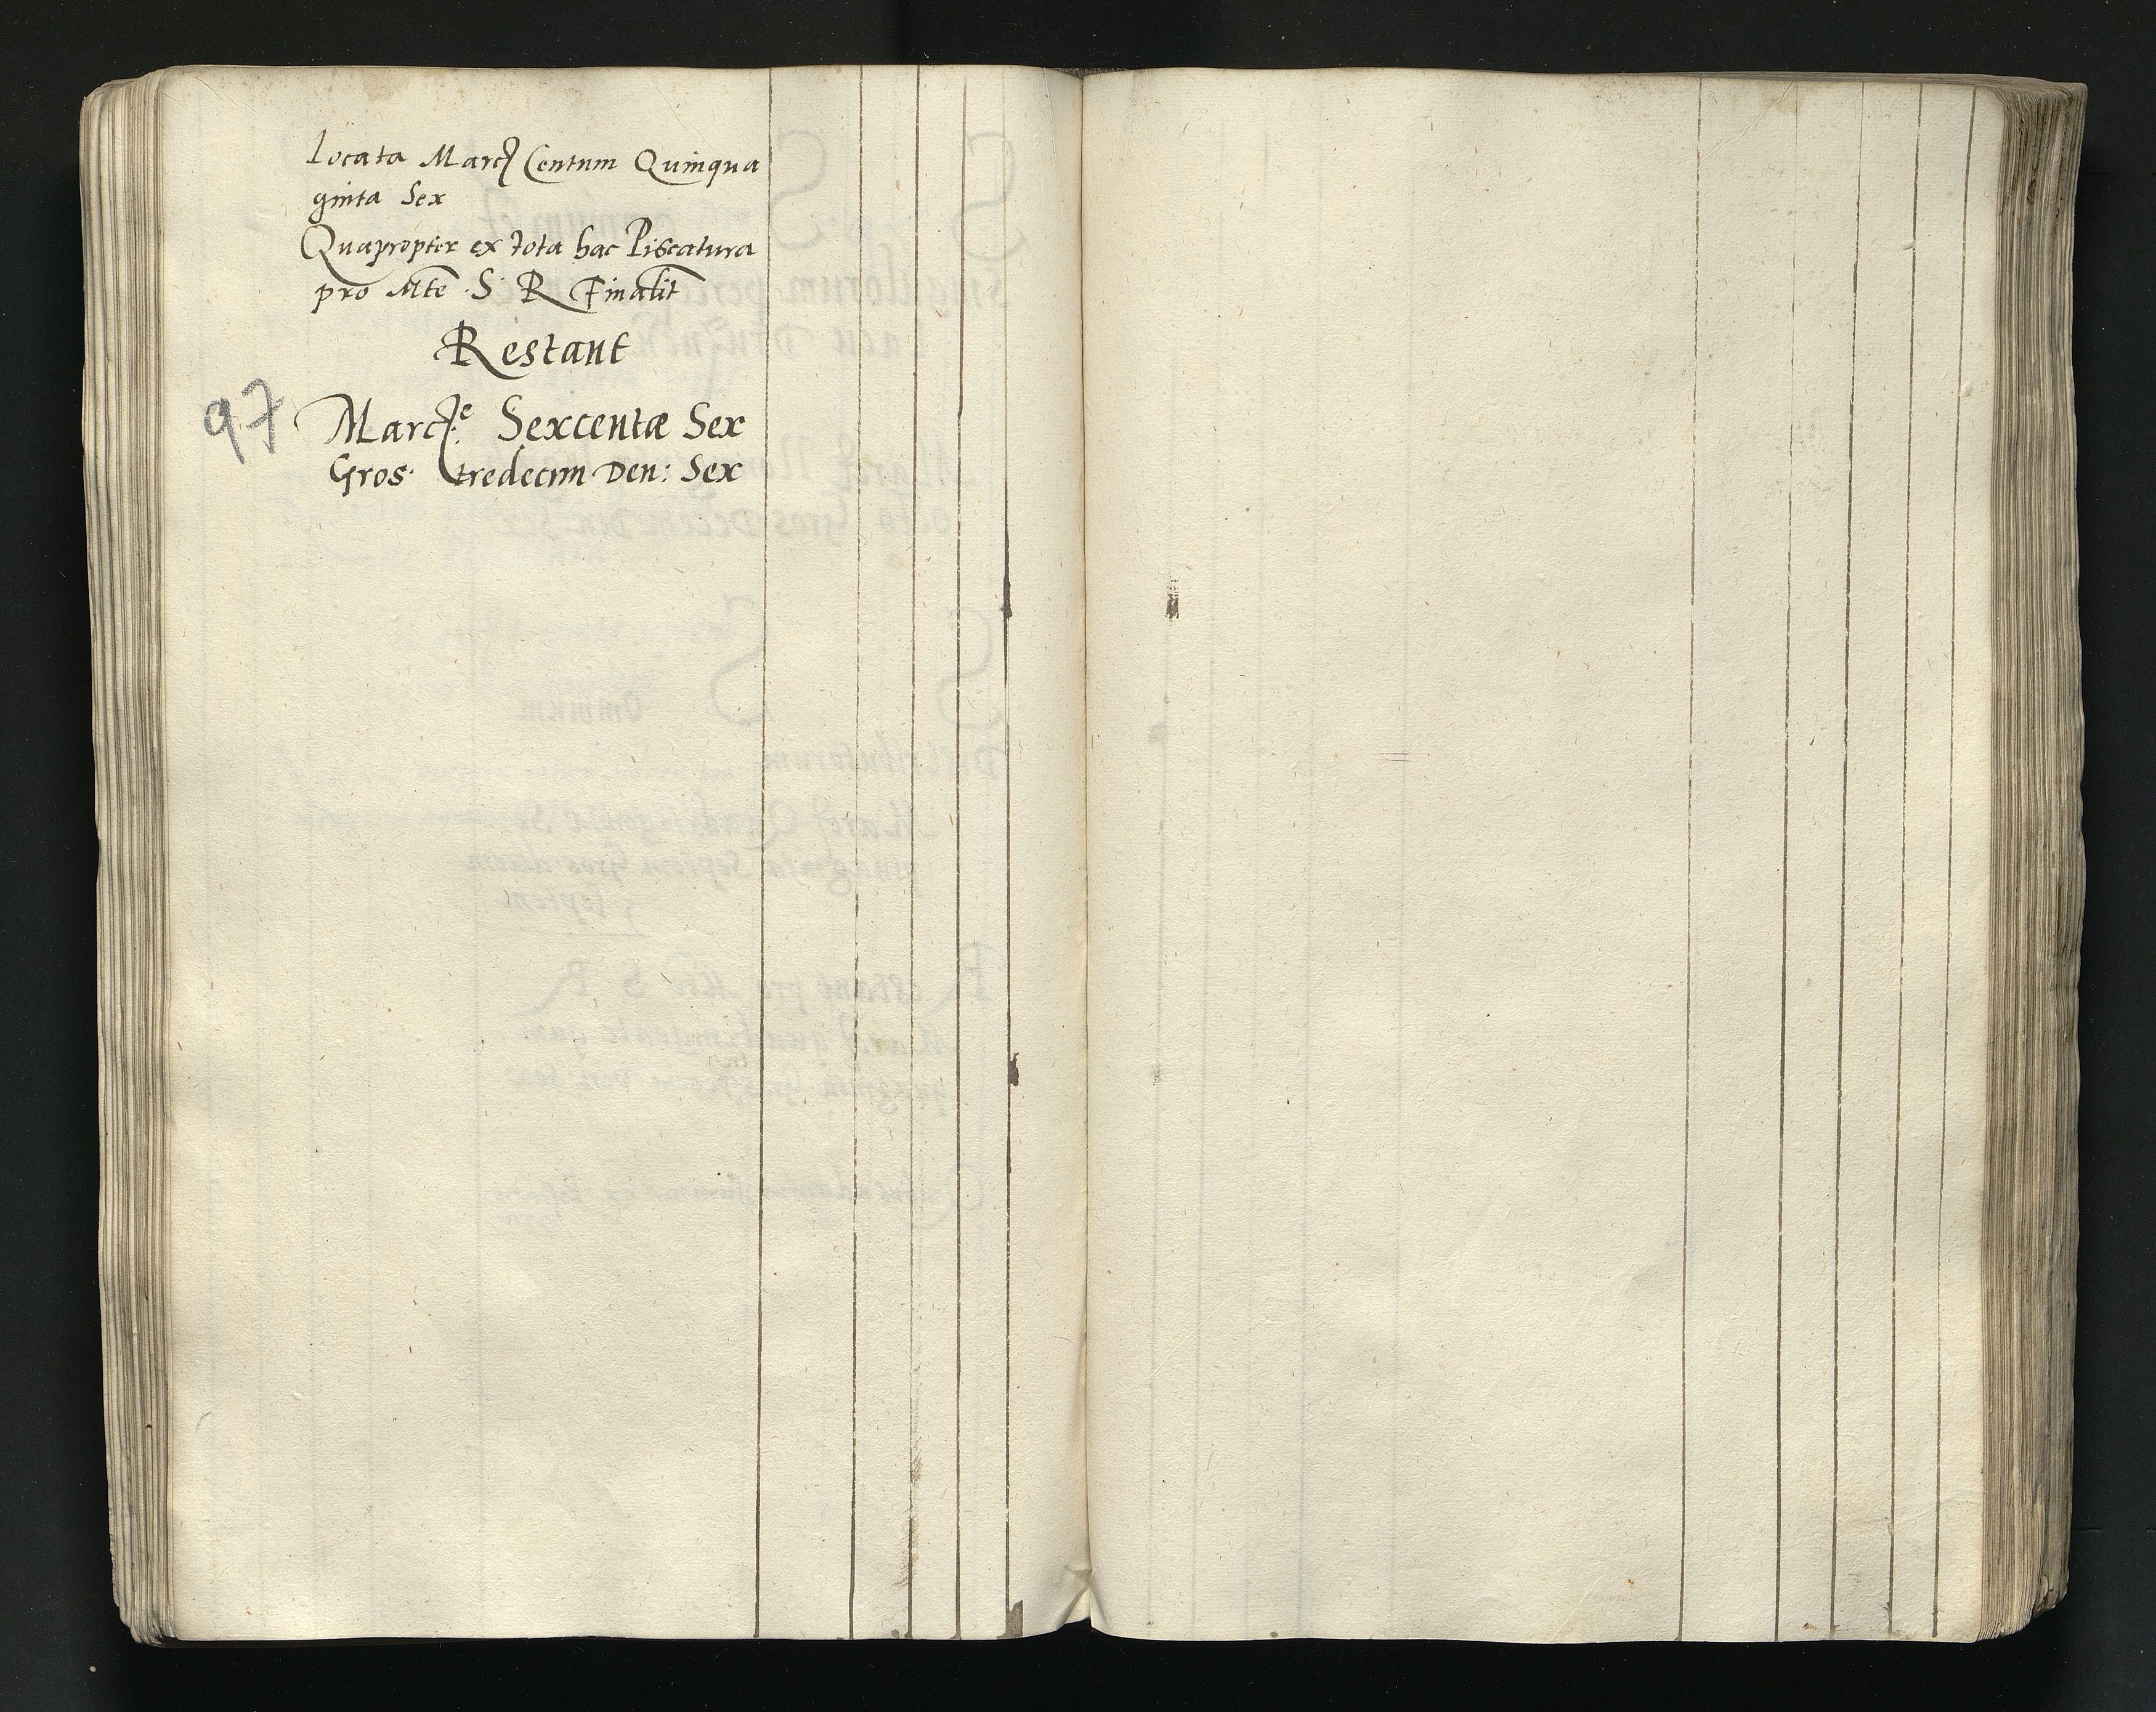 Locata Marc Centum Quinqua
ginta Sex
Quapropter ex tota hac Piscatura
pro Mte S R Finalit
Restant
97
Marce Sexcentæ Sex
Gros. tredecim Den: Sex